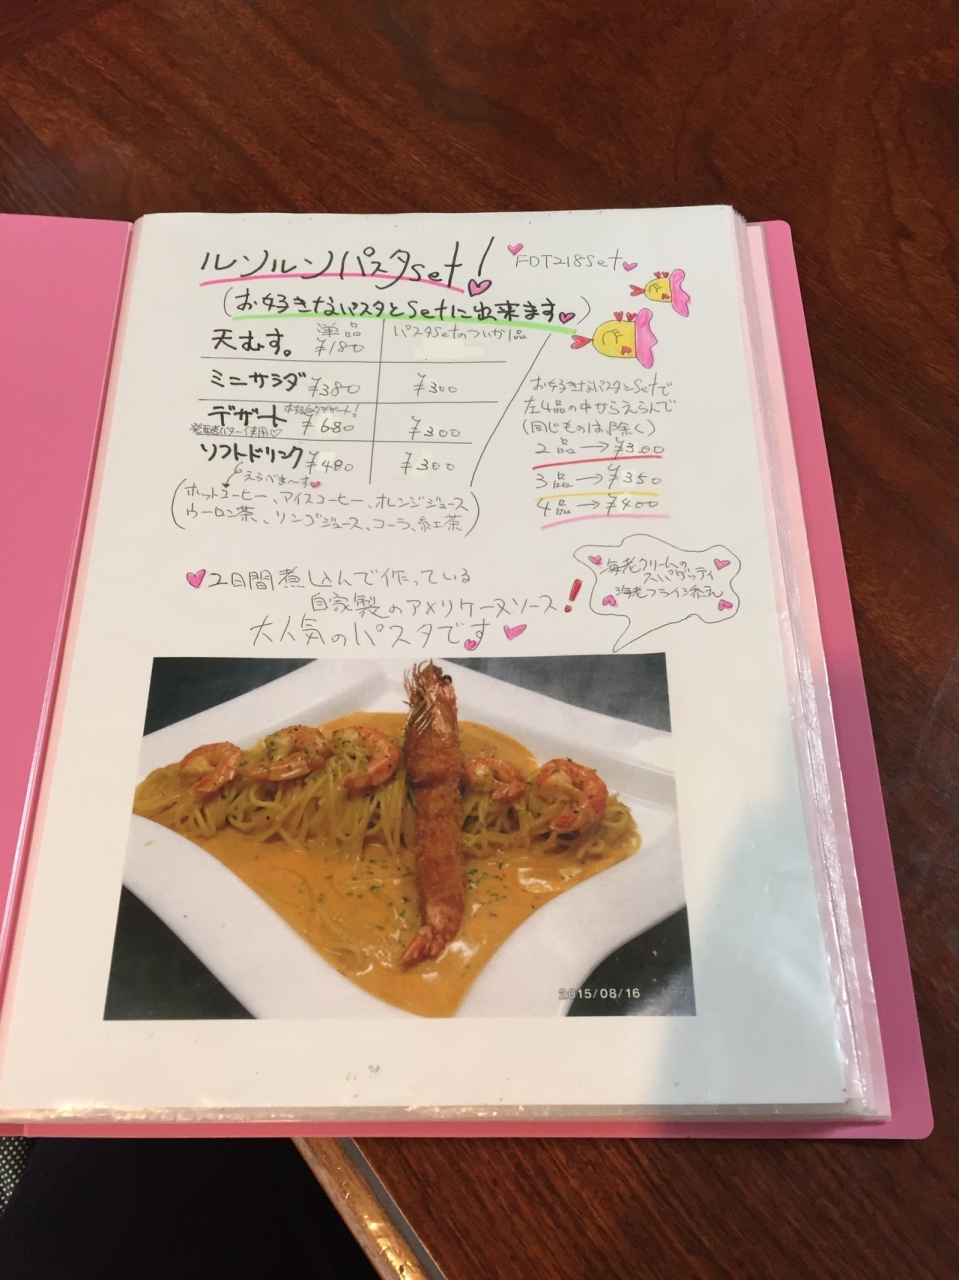 ルンルンパスタset!
FDT218set
(お好きなパスタとSetに出来ます)
単品 パスタSetのついか1品
天むす。 ¥180
ミニサラダ ¥380 ¥300
デザート 本格自家デザート! ¥680 ¥300
発酵バター使用
ソフトドリンク ¥480 ¥300
えらべま〜す
(ホットコーヒー、アイスコーヒー、オレンジジュース
ウーロン茶、リンゴジュース、コーラ、紅茶)
お好きなパスタとSetで
左4品の中からえらんで
(同じものは、除く)
2品→¥300
3品→¥350
4品→¥400
2日間煮込んで作っている
自家製のアメリケーヌソース!
大人気のパスタです
海老クリームの
スパゲッティ
海老フライ添え
2015/08/16